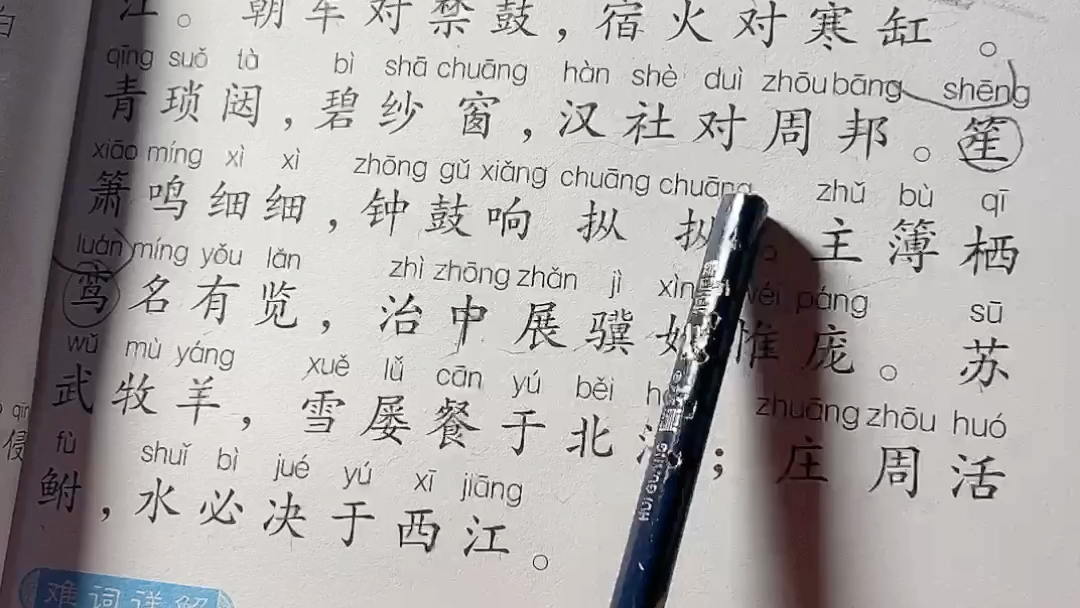 江。朝车对禁鼓，宿火对寒缸。
qīng suǒ tà bì shā chuāng hàn shè duì zhōu bāng shēng
青琐闼，碧纱窗，汉社对周邦。笙
xiāo míng xì xì zhōng gǔ xiǎng chuāng chuāng zhǔ bù qī
箫鸣细细，钟鼓响𪭢𪭢。主簿栖
luán míng yǒu lǎn zhì zhōng zhǎn jì páng sū
鸾名有览，治中展骥惟庞。苏
wǔ mù yáng xuě lǔ cān yú běi zhuāng zhōu huó
武牧羊，雪屡餐于北；庄周活
fù shuǐ bì jué yú xī jiāng
鲋，水必决于西江。
难词详解